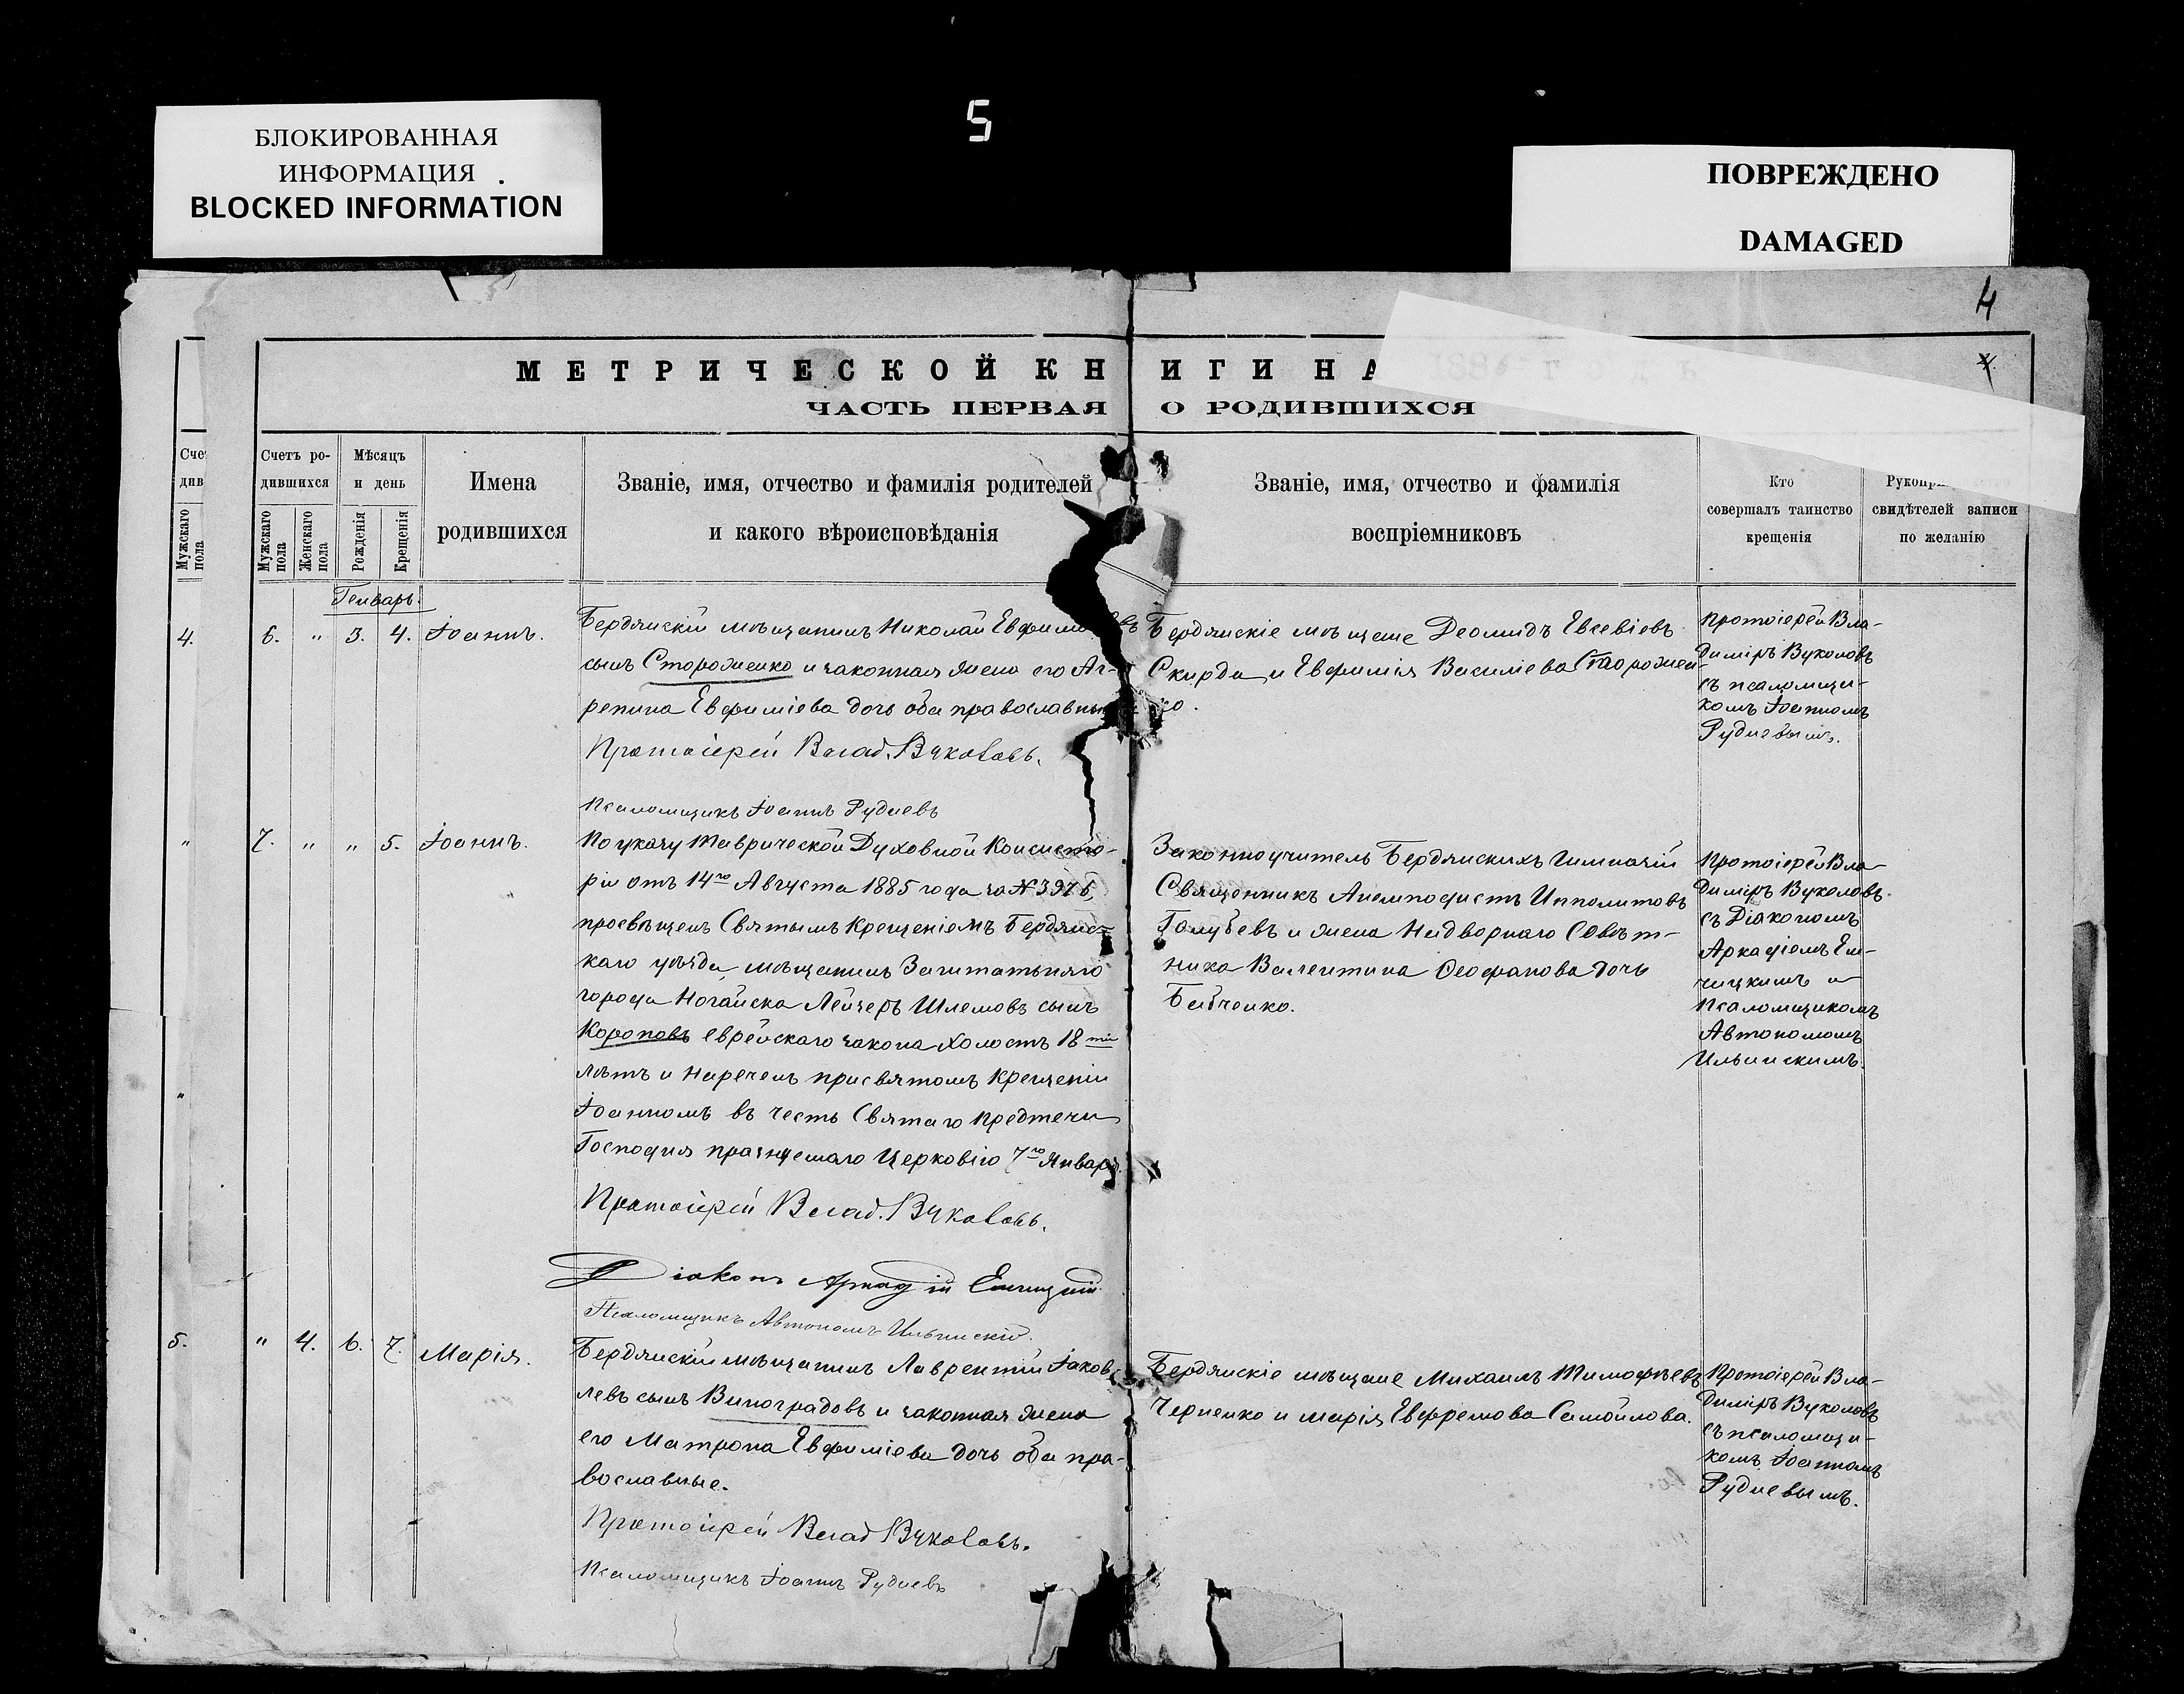 БЛОКИРОВАННАЯ
ИНФОРМАЦИЯ
BLOCKED INFORMATION
5
ПОВРЕЖДЕНО
DAMAGED
4
МЕТРИЧЕСКОЙ КНИГИ НА
ЧАСТЬ ПЕРВАЯ О РОДИВШИХСЯ
Счетъ ро-
дившихся
Мужскаго пола
Женскаго пола
Мѣсяцъ
и день
Рожденія
Крещенія
Имена
родившихся
Званіе, имя, отчество и фамилія родителей
и какого вѣроисповѣданія
Званіе, имя, отчество и фамилія
воспріемниковъ
Кто
совершалъ таинство
крещенія
свидѣтелей записи
по желанію
Мужскаго пола
Генварь.
4.
6. " 3. 4. Іоаннъ.
Бердянскій мѣщанинъ Николай
сынъ Стороженко и законная жена его Аг-
репина Евфиміева дочь оба православные
Протоіерей Влад. Вуколовъ.
Псаломщикъ Іоаннъ Рудневъ
Бердянскіе мѣщане Деомидъ Евсевіевъ
Скирда и Евфимія Василіева Сторожен-
ко.
Протоіерей Вла-
диміръ Вуколовъ
съ псаломщи-
комъ Іоанномъ
Рудневымъ.
" 7. " " 5. Іоаннъ.
По указу Таврической Духовной Консисто-
ріи отъ 14го Августа 1885 года за №
просвѣщенъ Святымъ Крещеніемъ Бердянс-
каго уѣзда мѣщанинъ Заштатнаго
города Ногайска Лейзеръ Шлемовъ сынъ
Короповъ еврейскаго закона холостъ 18ти
лѣтъ и Нареченъ при святомъ Крещеніи
Іоанномъ въ честь Святаго Предтечи
Господня празднуемаго Церковію 7го Января.
Протоіерей Влад. Вуколовъ.
Діаконъ Аркадій
Псаломщикъ Автономъ Ильинскій.
Законноучитель Бердянскихъ Гимназій
Священникъ Анемподистъ Ипполитовъ
Голубевъ и жена Надворнаго Совѣт-
ника Валентина Ѳеофанова дочь
Бабченко.
Протоіерей Вла-
диміръ Вуколовъ
съ Діакономъ
Аркадіемъ
и
Псаломщикомъ
Автономомъ
Ильинскимъ.
"
5.
" 4. 6. 7. Марія.
Бердянскій мѣщанинъ Лаврентій Іаков-
левъ сынъ Виноградовъ и законная жена
его Матрона Евфиміева дочь оба пра-
вославные.
Протоіерей Влад Вуколовъ.
Псаломщикъ Іоаннъ Рудневъ
Бердянскіе мѣщане Михаилъ Тимофѣевъ
Черненко и Марія Евфремова Самойлова.
Протоіерей Вла-
диміръ Вуколовъ
съ псаломщи-
комъ Іоанномъ
Рудневымъ.